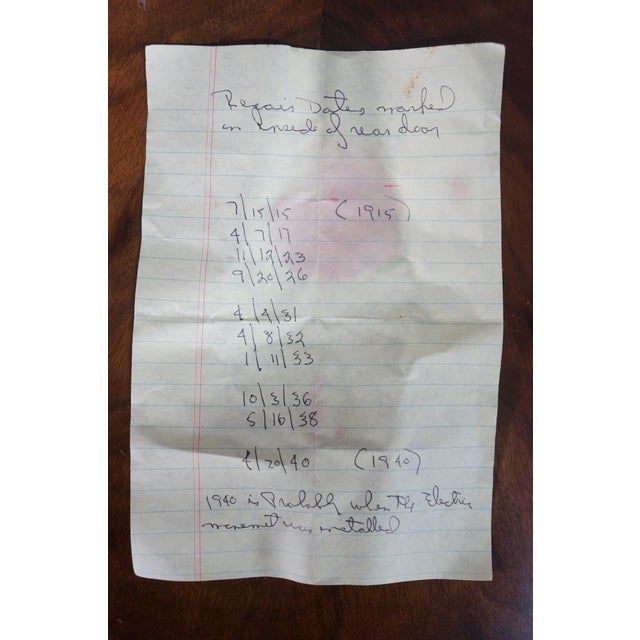 Repair Dates marked
on inside of rear door
7/15/15 (1915)
4/7/17
11/12/23
9/20/26
4/4/31
4/8/32
1/11/33
10/3/36
5/16/38
4/20/40 (1940)
1940 is Probably when the Electric
was installed